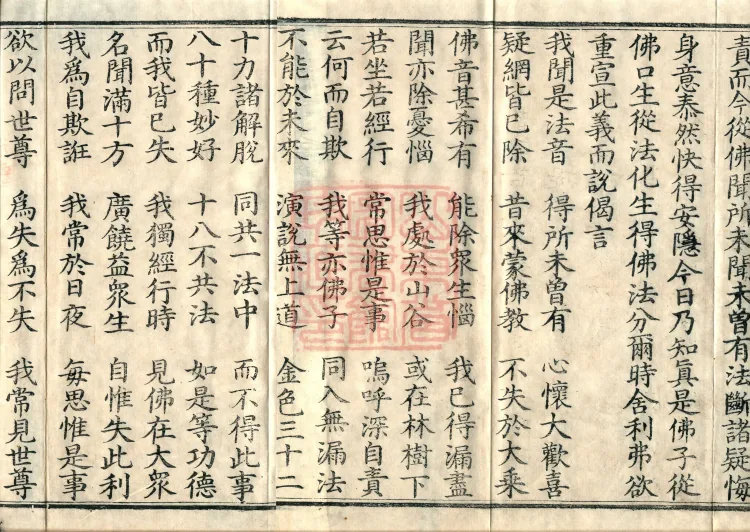 責而今從佛聞所未聞未曾有法斷諸疑悔
身意泰然快得安隱今日乃知真是佛子從
佛口生從法化生得佛法分爾時舍利弗欲
重宣此義而說偈言
我聞是法音 得所未曾有 心懷大歡喜
疑網皆已除 昔來蒙佛教 不失於大乘
佛音甚希有 能除眾生惱 我已得漏盡
聞亦除憂惱 我處於山谷 或在林樹下
若坐若經行 常思惟是事 嗚呼深自責
云何而自欺 我等亦佛子 同入無漏法
不能於未來 演說無上道 金色三十二
十力諸解脫 同共一法中 而不得此事
八十種妙好 十八不共法 如是等功德
而我皆已失 我獨經行時 見佛在大眾
名聞滿十方 廣饒益眾生 自惟失此利
我為自欺誑 我常於日夜 每思惟是事
欲以問世尊 為失為不失 我常見世尊